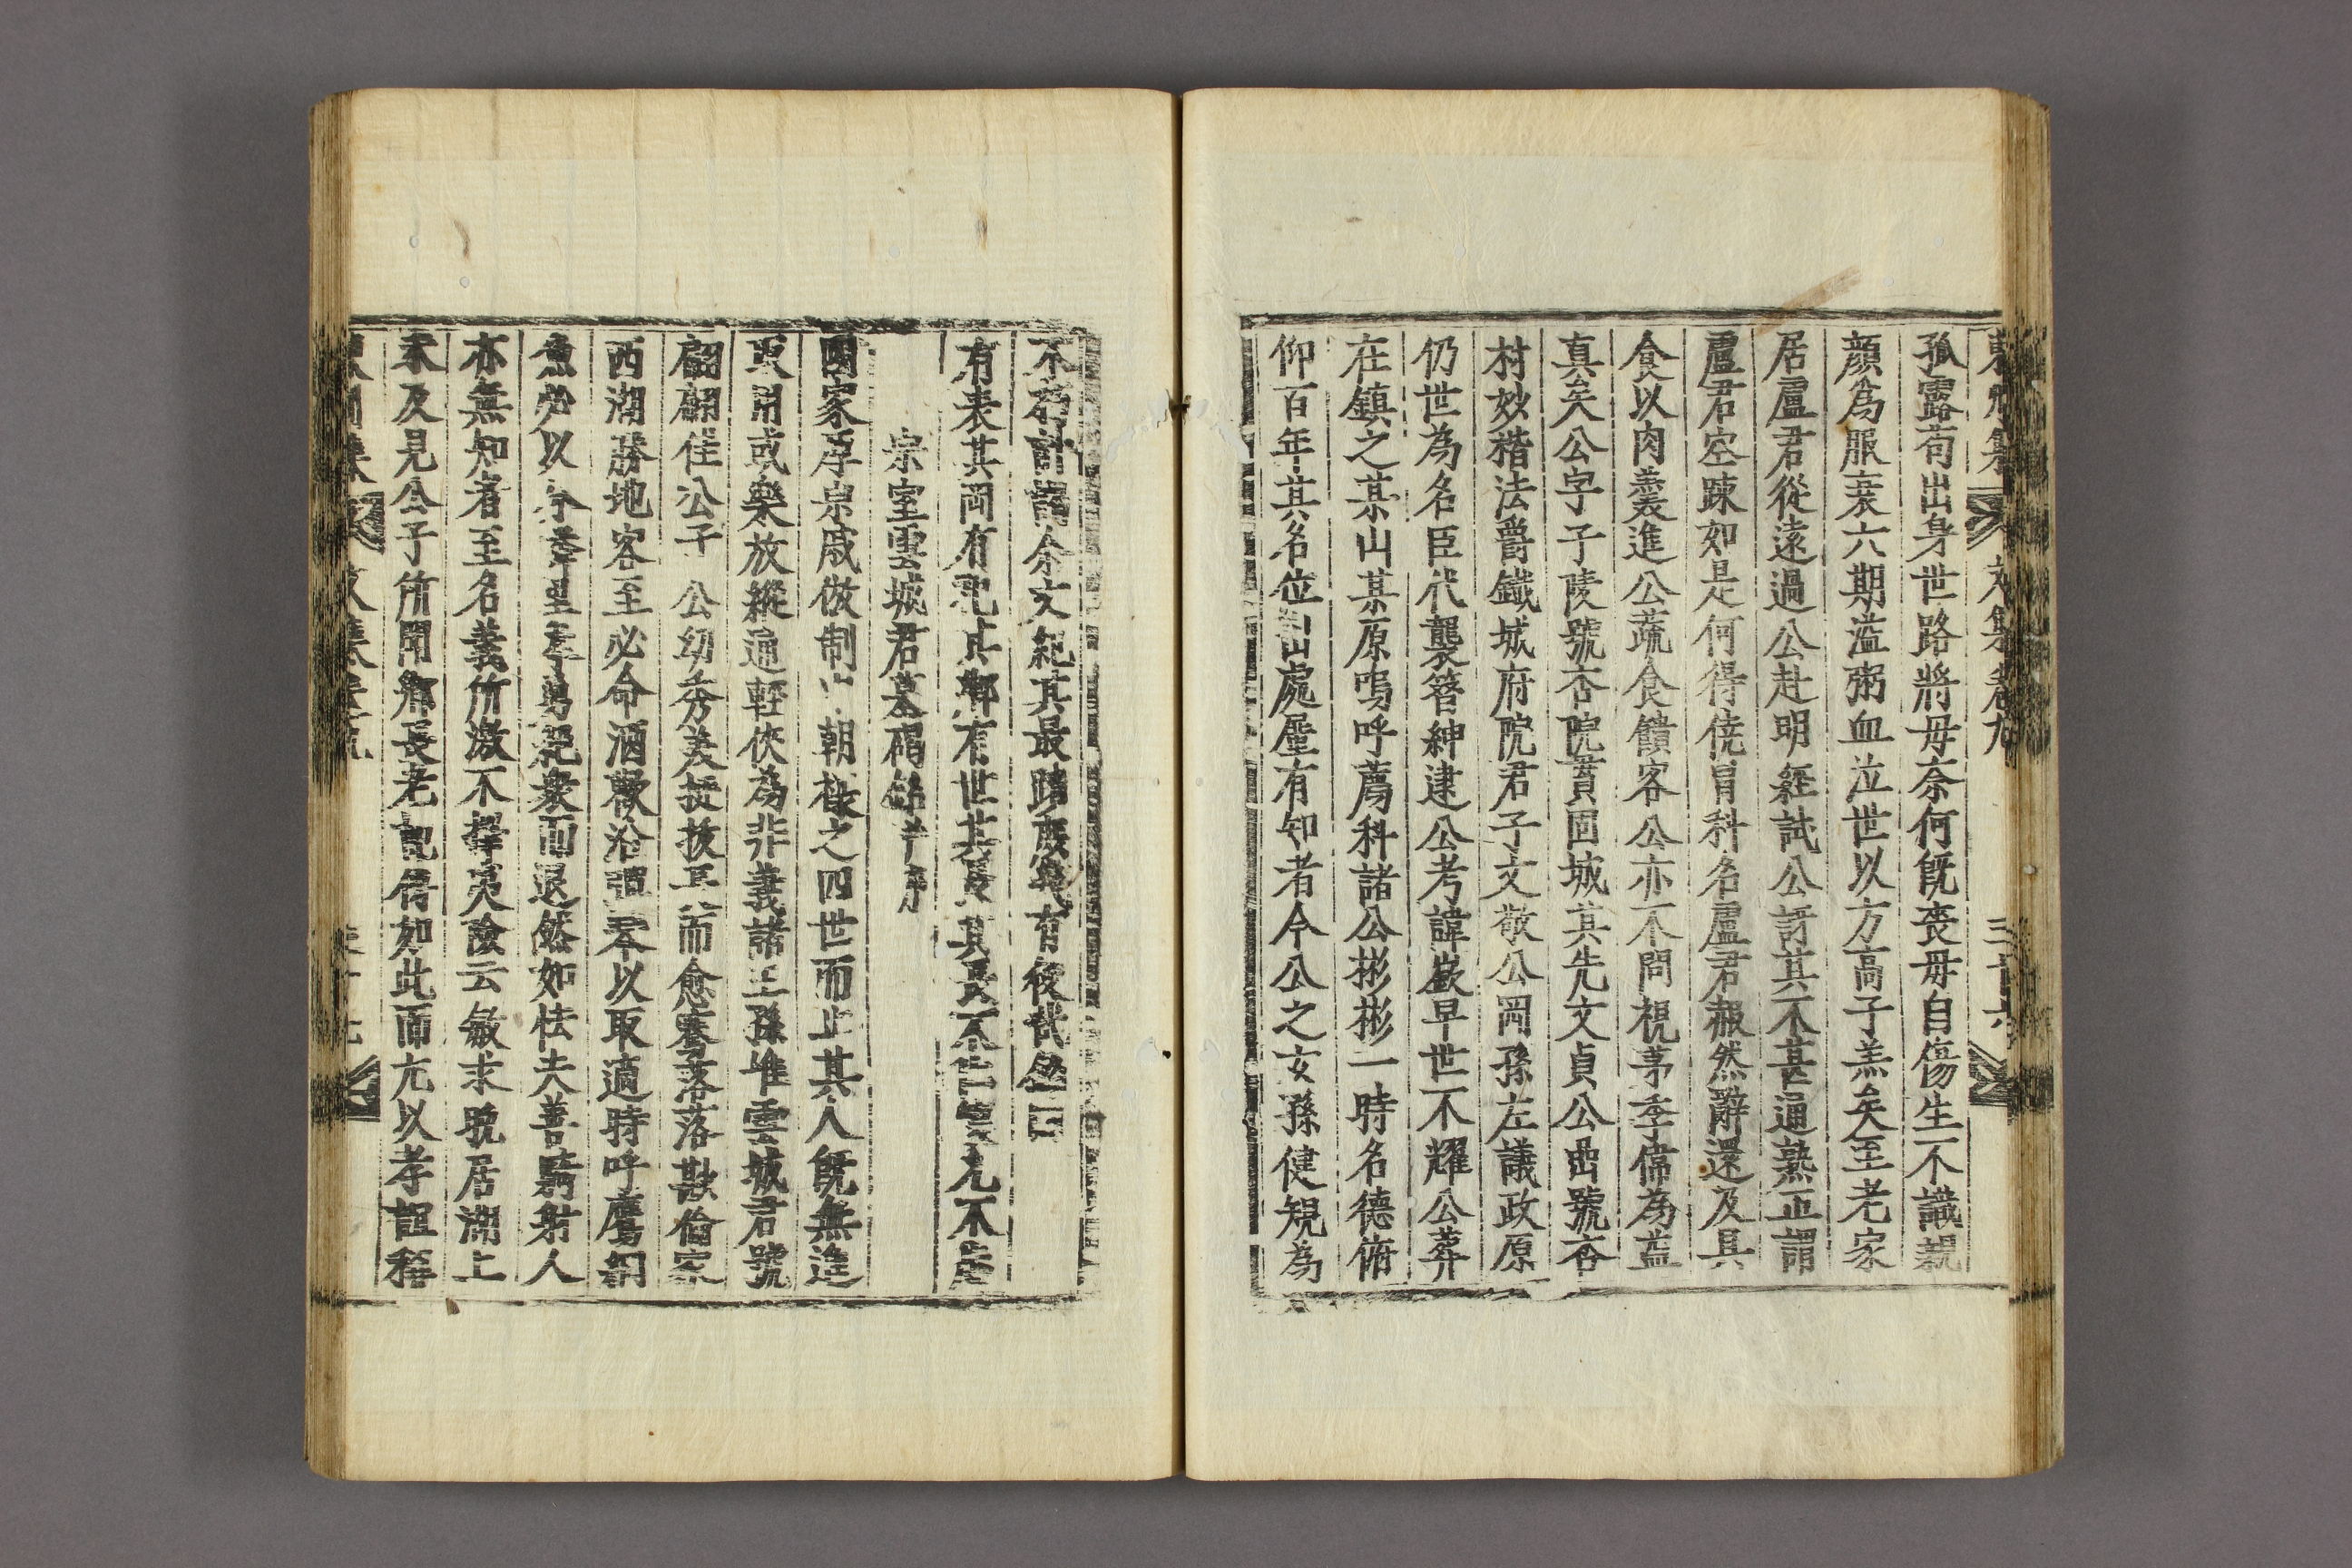 孤露苟出身世路將母奈何旣喪母自傷生不識親
顔爲服衰六期溢粥血泣世以方高子羔矣至老家
居盧君從遠過公赴明經試公訝其不甚通熟正謂
盧君空踈如是何得僥冒科名盧君赧然辭還及具
食以肉羹進公蔬食饋客公亦不問視茅季偉為益
真矣公字子陵號杏院貫固城其先文貞公嵒號杏
村妙楷法爵鐵城府院君子文敬公岡孫左議政原
仍世為名臣代襲簪紳逮公考諱嶔早世不耀公葬
在鎮之某山某原嗚呼薦科諸公彬彬一時名德俯
仰百年其名位出處屢有知者今公之女孫健䂓為
不為計謂余文紀其最躋廢幾有後哉銘曰
有表其岡有祀其鄉有世其其畏不亡尤不
宗室雲城君墓碣銘并序
國家厚宗戚倣制 朝祿之四世而止其人旣無進
取用或樂放縱通輕俠為非義諸王孫惟雲城君號
翩翩佳公子 公幼秀美挺拔長而愈騫落落歡倫家
西湖勝地客至必命酒歡洽彈琴以取適時呼鷹網
魚必以 勇冠衆而退然如怯夫善騎射人
亦無知者至名義所激不擇夷險云敏求晩居湖上
未及見公子所聞鄉長老記信如此而亢以孝謹稱